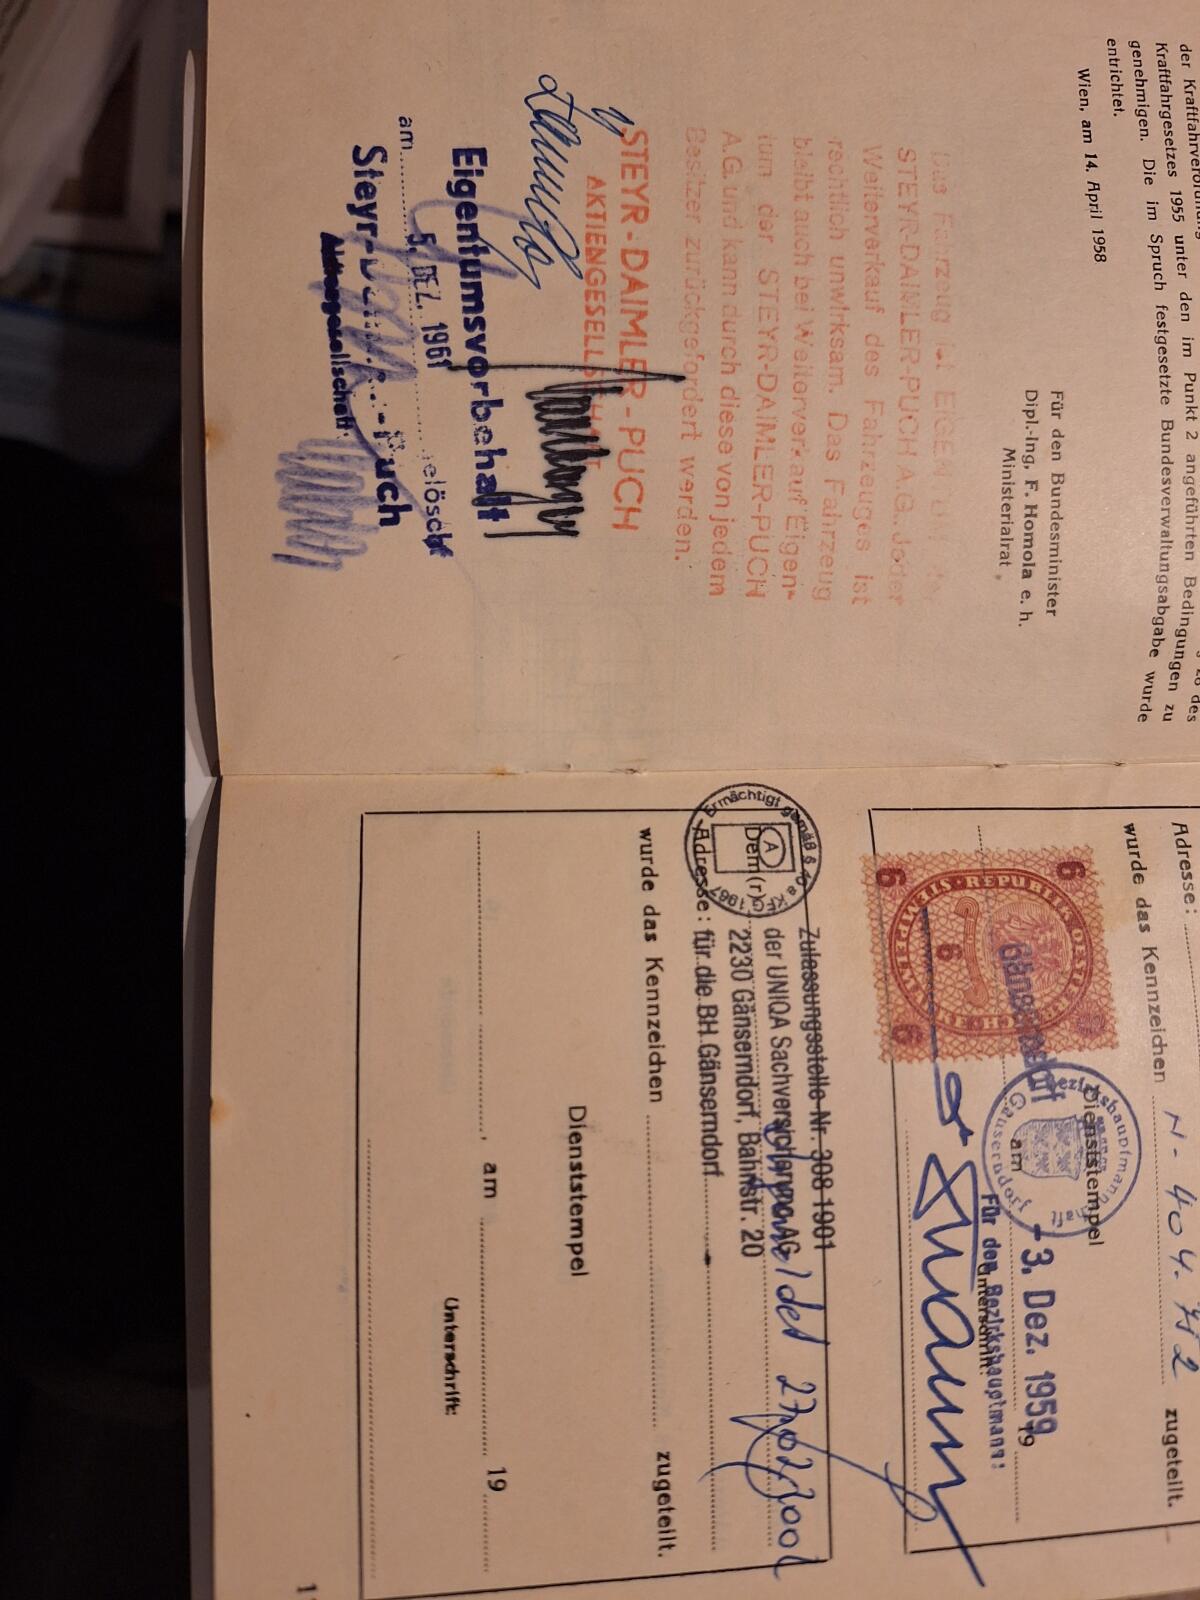 der Kraftfahrverordnung
Kraftfahrgesetzes 1955 unter den im Punkt 2 angeführten Bedingungen zu
genehmigen. Die im Spruch festgesetzte Bundesverwaltungsabgabe wurde
entrichtet.
Wien, am 14. April 1958
Für den Bundesminister
Dipl.-Ing. F. Homola e. h.
Ministerialrat
Das Fahrzeug ist EIGENTUM der
STEYR-DAIMLER-PUCH A.G. Jeder
Weiterverkauf des Fahrzeuges ist
rechtlich unwirksam. Das Fahrzeug
bleibt auch bei Weiterverkauf Eigen-
tum der STEYR-DAIMLER-PUCH
A.G. und kann durch diese von jedem
Besitzer zurückgefordert werden.
STEYR-DAIMLER-PUCH
AKTIENGESELLSCHAFT
Eigentumsvorbehalt
am 5. DEZ. 1961 gelöscht
Steyr-Daimler-Puch
Aktiengesellschaft
Adresse:
wurde das Kennzeichen N-404.712 zugeteilt.
6 6
REPUBLIK OESTERREICH
6
6 6
Dienststempel
Bezirkshauptmann
Gänserndorf
Gänserndorf am -3. Dez. 1959 19
Für den Bezirkshauptmann:
Unterschrift:
Zulassungsstelle Nr. 308 1901
Ermächtigt gemäß § 40 a KFG 1967
A
Dem(r)
der UNIQA Sachversicherung AG
2230 Gänserndorf, Bahnstr. 20
Adresse: für die BH Gänserndorf
27.02.2002
wurde das Kennzeichen zugeteilt.
Dienststempel
, am 19
Unterschrift: